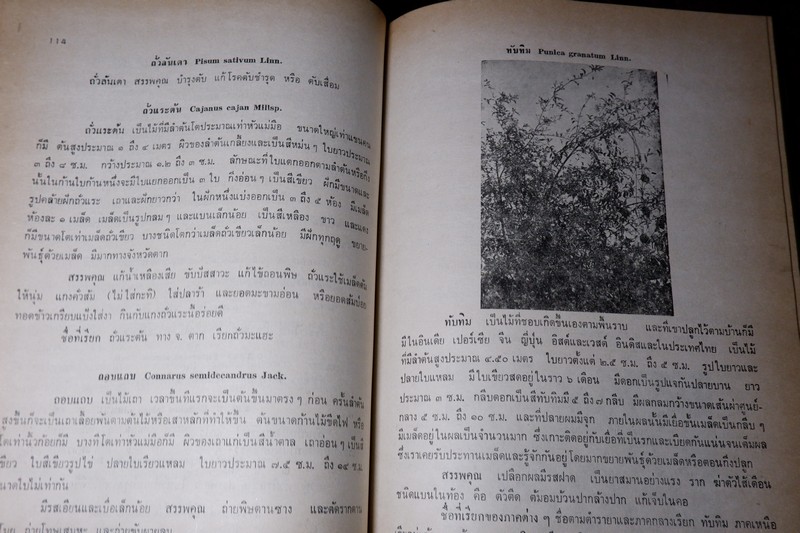 ๑๑๘
ถั่วลันเตา Pisum sativum Linn.
ถั่วลันเตา สรรพคุณ บำรุงตับ แก้โรคตับชำรุด หรือ ตับเสื่อม
ถั่วแระต้น Cajanus cajan Millsp.
ถั่วแระต้น เป็นไม้ที่มีลำต้นโตประมาณเท่าหัวแม่มือ ขนาดใหญ่เท่าแขนคน
ก็มี ต้นสูงประมาณ ๑ ถึง ๔ เมตร ผิวของลำต้นเกลี้ยงและเป็นสีหม่นๆ ใบยาวประมาณ
๓ ถึง ๘ ซ.ม. กว้างประมาณ ๑.๒ ถึง ๓ ซ.ม. ลักษณะที่ใบแตกออกตามลำต้นหรือกิ่ง
นั้นในก้านใบก้านหนึ่งจะมีใบแยกออกเป็น ๓ ใบ กิ่งอ่อนๆ เป็นสีเขียว ฝักมีขนาดและ
รูปคล้ายฝักถั่วแระ เถาและฝักยาวกว่า ในฝักหนึ่งแบ่งออกเป็น ๓ ถึง ๕ ห้อง มีเมล็ด
ห้องละ ๑ เมล็ด เมล็ดเป็นรูปกลมๆ และแบนเล็กน้อย เป็นสีเหลือง ขาว และแดง
ก็มีขนาดโตเท่าเมล็ดถั่วเขียว บางชนิดโตกว่าเมล็ดถั่วเขียวเล็กน้อย มีฝักทุกฤดู ขยาย-
พันธุ์ด้วยเมล็ด มีมากทางจังหวัดตาก
สรรพคุณ แก้น้ำเหลืองเสีย ขับปัสสาวะ แก้ไข้ถอนพิษ ถั่วแระใช้เมล็ดต้ม
ให้นุ่ม แกงคั่วส้ม (ไม่ใส่กะทิ) ใส่ปลาร้า และยอดมะขามอ่อน หรือยอดส้มป่อย
ทอดข้าวเกรียบแป้งใส่งา กินกับแกงถั่วแระนี้อร่อยดี
ชื่อที่เรียก ถั่วแระต้น ทาง จ. ตาก เรียกถั่วมะแฮะ
ถอบแถบ Connarus semidecandrus Jack.
ถอบแถบ เป็นไม้เถา เวลาขึ้นทีแรกจะเป็นต้นขึ้นมาตรงๆ ก่อน ครั้นลำต้น
สูงขึ้นก็จะเป็นเถาเลื้อยพันตามต้นไม้หรือเสาหลักที่ทำให้ขึ้น ต้นขนาดก้านไม้ขีดไฟ หรือ
โตเท่านิ้วก้อยก็มี บางทีโตเท่าหัวแม่มือก็มี ผิวของเถาแก่เป็นสีน้ำตาล เถาอ่อนๆ เป็นสี
เขียว ใบสีเขียวรูปไข่ ปลายใบเรียวแหลม ใบยาวประมาณ ๗.๕ ซ.ม. ถึง ๑๔ ซ.ม.
ขนาดใบไม่เท่ากัน
มีรสเอียนและเบื่อเล็กน้อย สรรพคุณ ถ่ายพิษตานซาง และตัดรากตาน
ถ่ายโทษเสมหะ และถ่ายขับพยาธิ
ทับทิม Punica granatum Linn.
ทับทิม เป็นไม้ที่ชอบเกิดขึ้นเองตามพื้นราบ และที่เขาปลูกไว้ตามบ้านก็มี
มีในอินเดีย เปอร์เซีย จีน ญี่ปุ่น อิสต์และเวสต์ อินดิสและในประเทศไทย เป็นไม้
ที่มีลำต้นสูงประมาณ ๔.๕๐ เมตร ใบยาวตั้งแต่ ๒.๕ ซ.ม. ถึง ๕ ซ.ม. รูปใบยาวและ
ปลายใบแหลม มีใบเขียวสดอยู่ในราว ๖ เดือน มีดอกเป็นรูปแจกันปลายบาน ยาว
ประมาณ ๓ ซ.ม. กลีบดอกเป็นสีทับทิมมี ๕ ถึง ๗ กลีบ มีผลกลมกว้างขนาดเส้นผ่าศูนย์-
กลาง ๕ ซ.ม. ถึง ๑๐ ซ.ม. และที่ปลายผมมีจุก ภายในผลนั้นมีเยื่อขั้นเมล็ดเป็นกลีบๆ
มีเมล็ดอยู่ในผลเป็นจำนวนมาก ซึ่งเกาะติดอยู่กับเยื่อที่เป็นรกและเบียดกันแน่นจนเต็มผล
ซึ่งเราเคยรับประทานเมล็ดและรู้จักกันอยู่โดยมากขยายพันธุ์ด้วยเมล็ดหรือตอนกิ่งปลูก
สรรพคุณ เปลือกผลมีรสฝาด เป็นยาสมานอย่างแรง ราก ฆ่าตัวไส้เดือน
ชนิดแบนในท้อง คือ ตัวตืด ต้มอมบ้วนปากล้างปาก แก้เจ็บในคอ
ชื่อที่เรียกของภาคต่างๆ ชื่อตามตำรายาและภาคกลางเรียก ทับทิม ภาคเหนือ